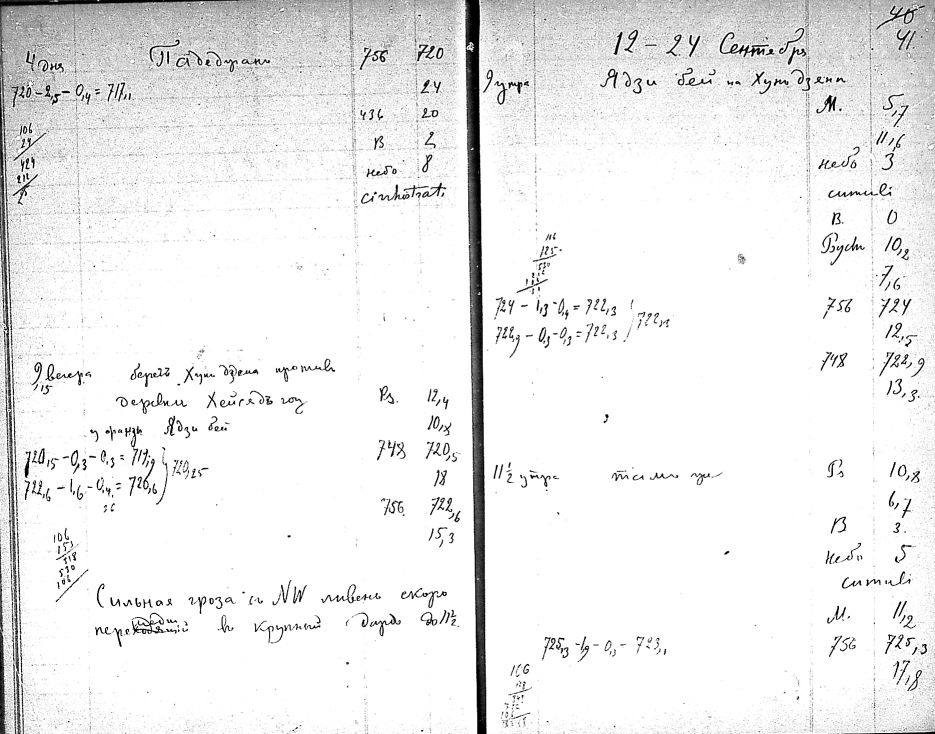 4 дня 756 720
720 – 2,5 – 0,4 = 717,1 24
436 20
106
24 В 2
424
212 небо 8
cirrhostrati
9,15 вечера берегъ Хуньдзена противъ
деревни Rs. 12,4
Ядзи бей 10,8
720,15 – 0,3 – 0,3 = 719,9 748 720,5
720,25
18
722,6 – 1,6 – 0,4 = 720,6 756 722,6
15,3
106
153
318
530
106
Сильная гроза съ NW ливень скоро
въ крупный до 11½.
40
41.
12 – 24 Сентебря
9 утра Ядзи бей на Хуньдзени
М. 5,7
11,6
небо 3
cumuli
В. 0
10,2
106
125
530
7,6
724 – 1,3 – 0,4 = 722,3 756 724
722,3
12,5
722,9 – 0,3 – 0,3 = 722,3 748 722,9
13,3
11½ утра тамъ же Rs 10,8
6,7
В 3.
небо 5
cumuli
М. 11,2
725,3 – 1,9 – 0,3 – 723,1 756 725,3
106 17,8